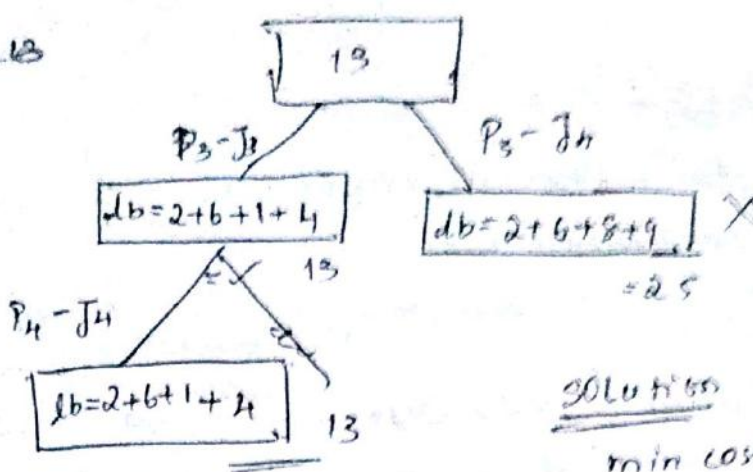 13
13
P3-J3 P3-J4
lb=2+6+1+4 lb=2+6+8+9 X
13 =25
P4-J4
lb=2+6+1+4 13
solution
min cos